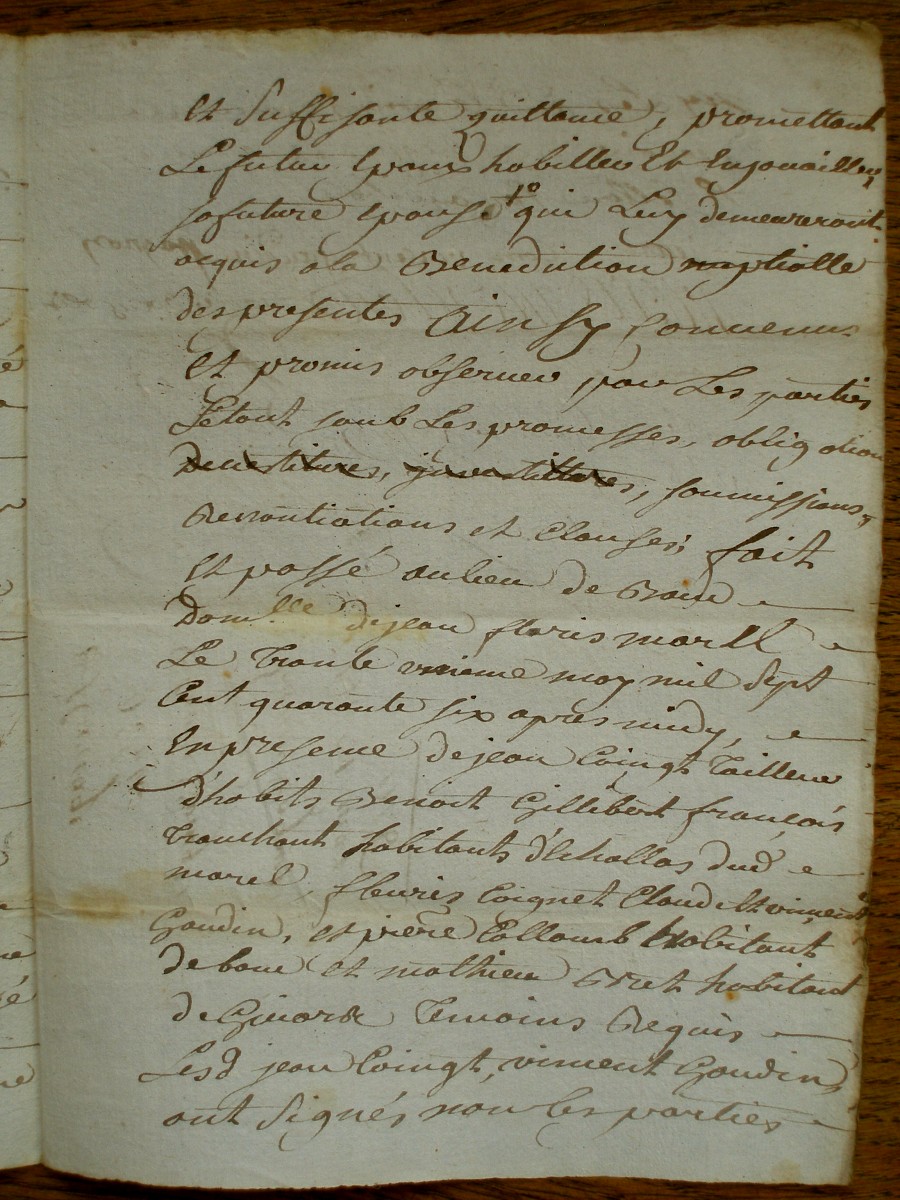 et suffisante quittance, promettant
Le futur epoux habiller et Enjouailler
sa future epouse qui Luy demeureront
acquis a la Benediction nuptialle
des presentes Ainsy convenus
et promis observer par Les parties
Letout soub Les promesses, obligation
Devestitures, jnvestittures, soumissions,
Renontiations et Clauses; fait
et passé au lieu de
Dom.lle dejean floris marel
Le Trante unieme may mil sept
Cent quarante six apres midy,
En presence dejean Coingt Tailleur
d'habits Benoit Gillibert françois
Tranchant habitants d'Echallas dud.
marel, fleuris Coignet Claude et vincent
Goudin, et pierre Collomb habitant
de et mathieu habitant
de Temoins Requis
Lesd jean Coingt, vincent Goudin
ont signés non les parties